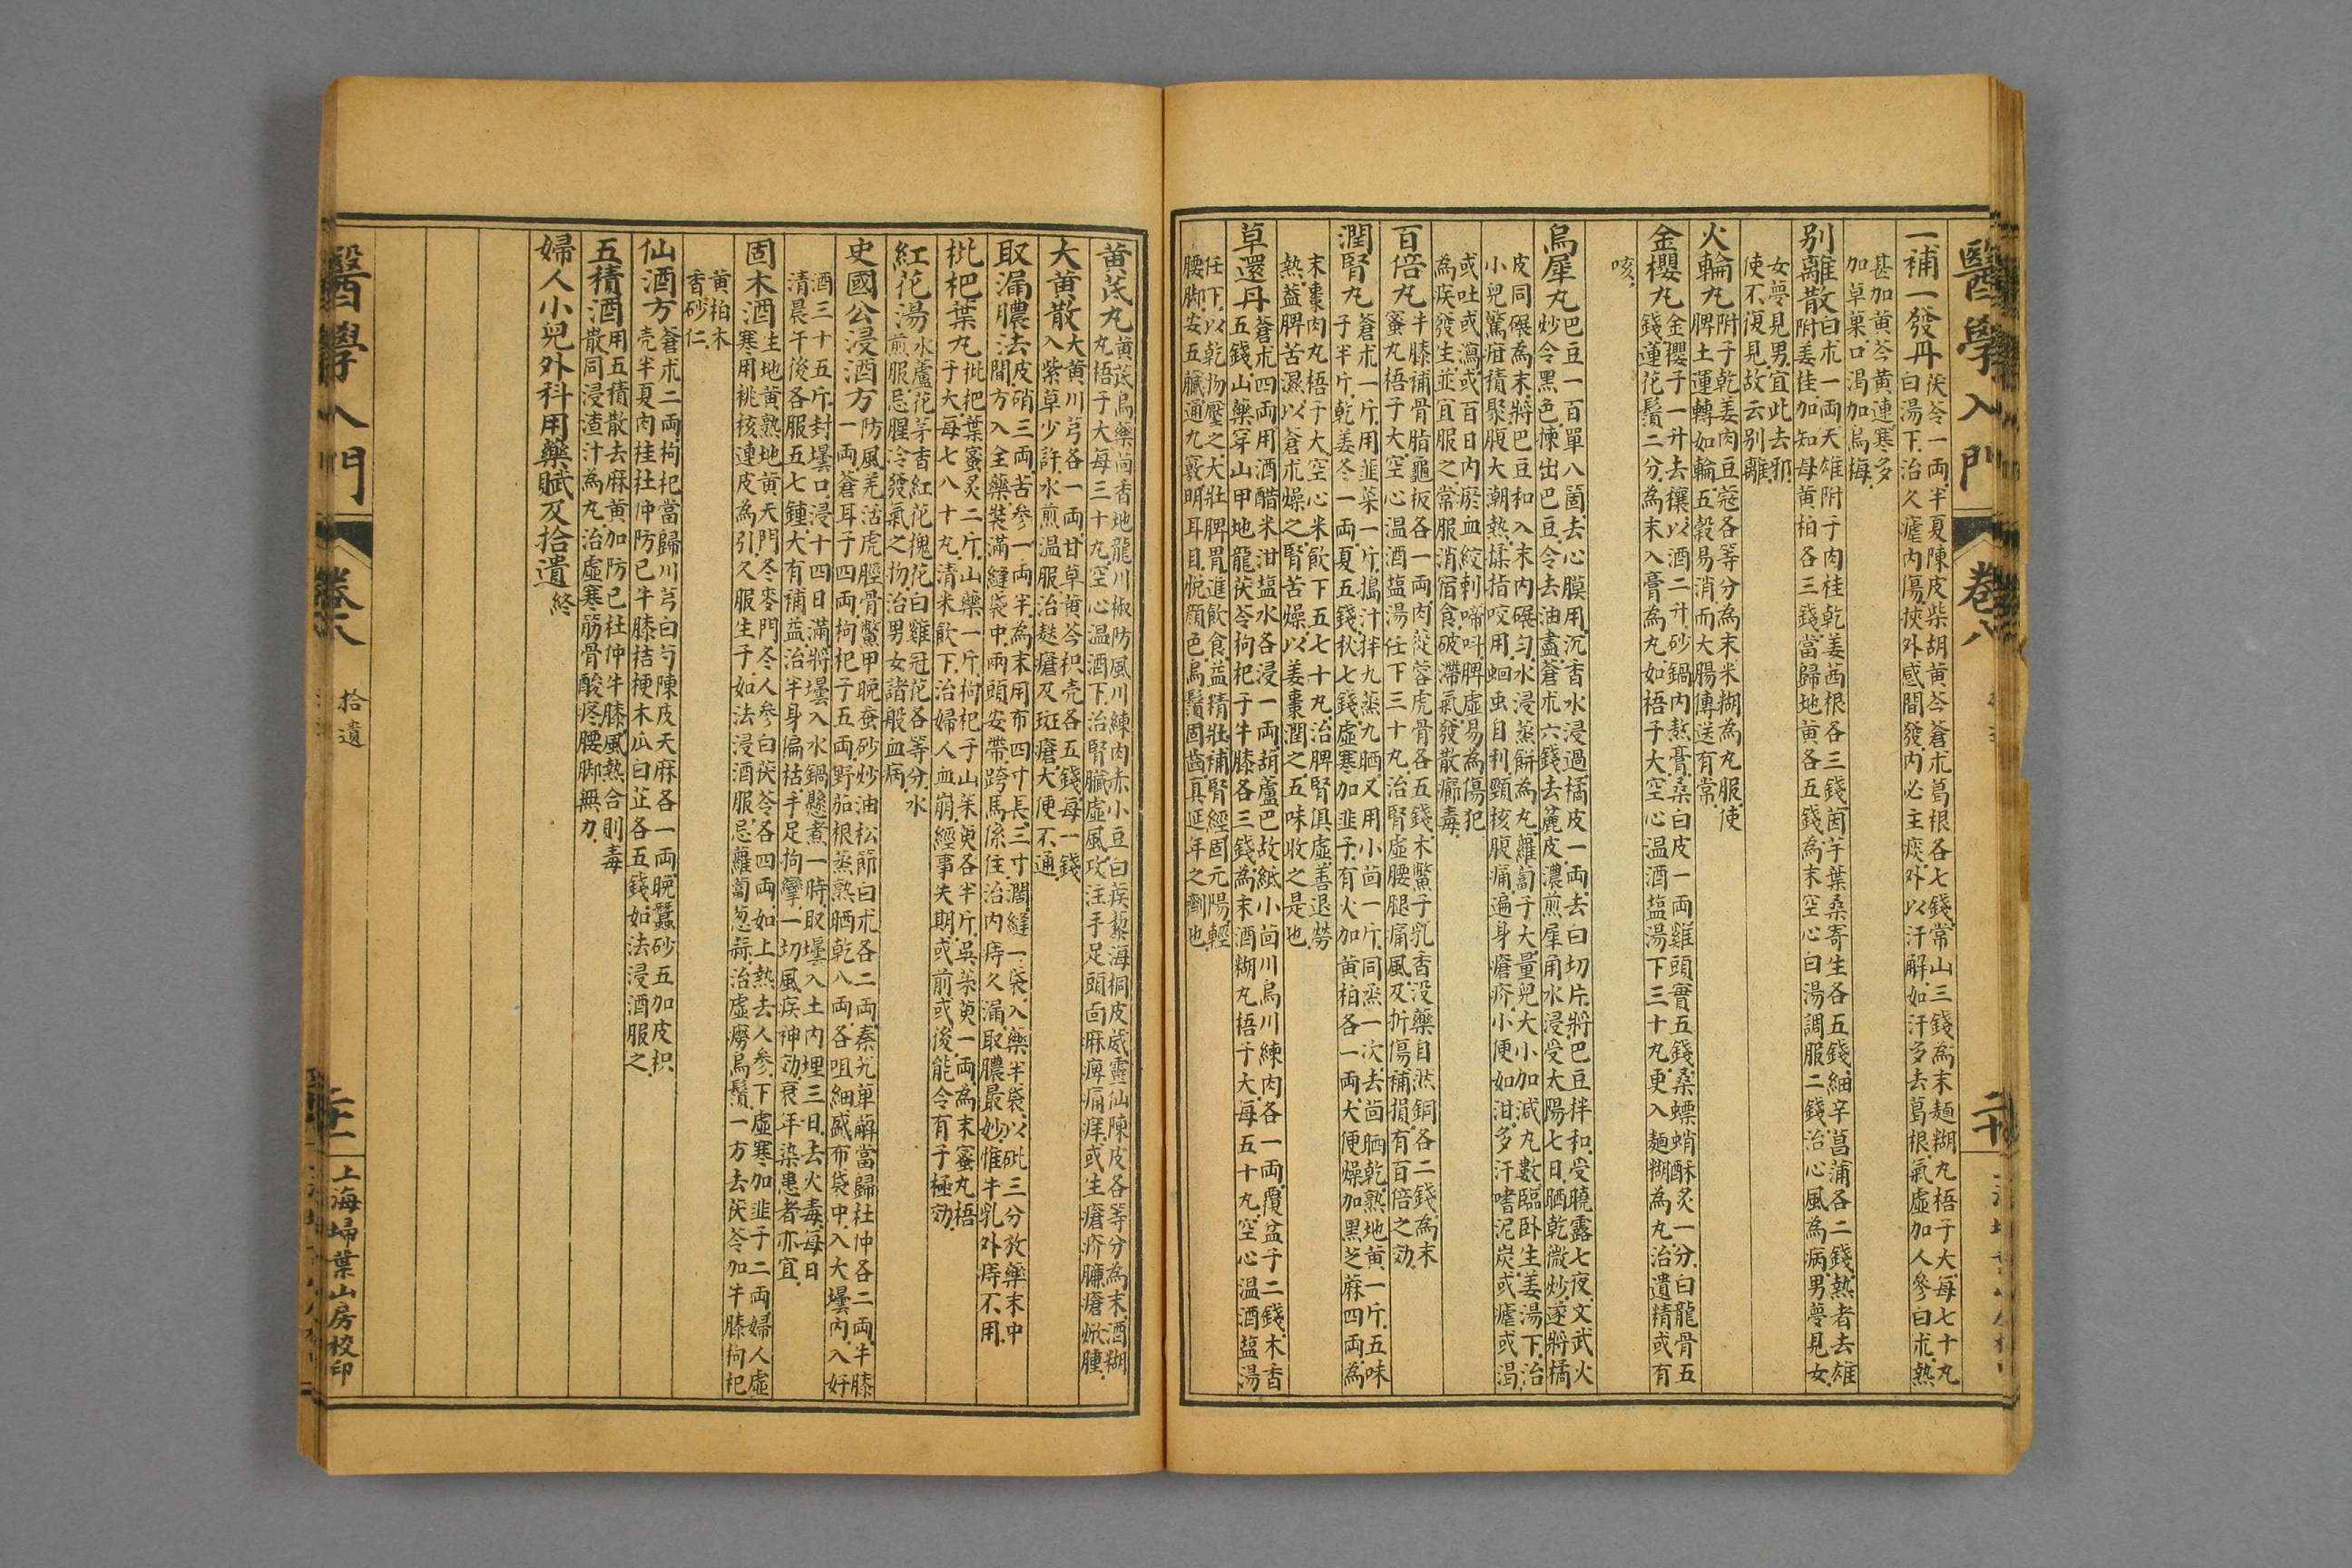 醫學入門 卷八 二十
一補一發丹 茯苓一兩半夏陳皮柴胡黃芩蒼朮葛根各七錢常山三錢為末麵糊丸梧子大每七十丸
白湯下治久瘧內傷挾外感間發內必主痰外以汗解如汗多去葛根氣虛加人參白朮熱
甚加黃芩黃連寒多
加草菓口渴加烏梅
別離散 白朮一兩天雄附子肉桂乾姜茜根各三錢茵芋葉桑寄生各五錢細辛菖蒲各二錢熱者去雄
附姜桂加知母黃柏各三錢當歸地黃各五錢為末空心白湯調服二錢治心風為病男夢見女
女夢見男宜此去邪
使不復見故云別離
火輪丸 附子乾姜肉豆蔻各等分為末米糊為丸服使
脾土運轉如輪五穀易消而大腸傳送有常
金櫻丸 金櫻子一升去穰以酒二升砂鍋內熬膏桑白皮一兩雞頭實五錢桑螵蛸酥炙一分白龍骨五
錢蓮花鬚二分為末入膏為丸如梧子大空心溫酒塩湯下三十丸更入麵糊為丸治遺精或有
咳
烏犀丸 巴豆一百單八箇去心膜用沉香水浸過橘皮一兩去白切片將巴豆拌和受曉露七夜文武火
炒令黑色揀出巴豆令去油盡蒼朮六錢去麄皮濃煎犀角水浸受太陽七日晒乾微炒遂將橘
皮同碾為末將巴豆和入末內碾勻水浸蒸餅為丸蘿蔔子大量兒大小加減丸數臨卧生姜湯下治
小兒驚疳積聚腹大潮熱揉指咬用蛔虫自利頸核腹痛遍身瘡疥小便如泔多汗嗜泥炭或瘧或渴
或吐或瀉或百日內瘀血絞刺啼呌脾虛易為傷犯
為疾發生並宜服之常服消宿食破滯氣發散癤毒
百倍丸 牛膝補骨脂龜板各一兩肉蓯蓉虎骨各五錢木鱉子乳香沒藥自然銅各二錢為末
蜜丸梧子大空心溫酒塩湯任下三十丸治腎虛腰腿痛風及折傷補損有百倍之効
潤腎丸 蒼朮一斤用韮菜一斤搗汁拌九蒸九晒又用小茴一斤同蒸一次去茴晒乾熟地黃一斤五味
子半斤乾姜冬一兩夏五錢秋七錢虛寒加韮子有火加黃柏各一兩大便燥加黑芝蔴四兩為
末棗肉丸梧子大空心米飲下五七十丸治脾腎俱虛善退勞
熱益脾苦濕以蒼朮燥之腎苦燥以姜棗潤之五味收之是也
草還丹 蒼朮四兩用酒醋米泔塩水各浸一兩胡蘆巴故紙小茴川烏川練肉各一兩覆盆子二錢木香
五錢山藥穿山甲地龍茯苓枸杞子牛膝各三錢為末酒糊丸梧子大每五十丸空心溫酒塩湯
任下以乾物壓之大壯脾胃進飲食益精壯補腎經固元陽輕
腰脚安五臟通九竅明耳目悅顏色烏鬚固齒真延年之劑也
黃茋丸 黃茋烏藥茴香地龍川椒防風川練肉赤小豆白疾藜海桐皮威靈仙陳皮各等分為末酒糊
丸梧子大每三十丸空心溫酒下治腎臟虛風攻注手足頭面麻痺痛痒或生瘡疥臁瘡焮腫
大黃散 大黃川芎各一兩甘草黃芩枳壳各五錢每一錢
入紫草少許水煎溫服治麩瘡及斑瘡大便不通
取漏膿法 皮硝三兩苦參一兩半為末用布四寸長三寸濶縫一袋入藥半袋以砒三分放藥末中
間方入全藥裝滿縫袋中兩頭安帶跨馬係住治內痔久漏取膿最妙惟牛乳外痔不用
枇杷葉丸 枇杷葉蜜炙二斤山藥一斤枸杞子山茱萸各半斤吳茱萸一兩為末蜜丸梧
子大每七八十丸清米飲下治婦人血崩經事失期或前或後能令有子極効
紅花湯 水蘆花茅香紅花槐花白雞冠花各等分水
煎服忌腥冷發氣之物治男女諸般血病
史國公浸酒方 防風羌活虎脛骨鱉甲晚蚕砂炒油松節白朮各二兩秦艽萆薢當歸杜仲各二兩牛膝
一兩蒼耳子四兩枸杞子五兩野茄根蒸熟晒乾八兩各咀細盛布袋中入大壜內入好
酒三十五斤封壜口浸十四日滿將壜入水鍋懸煮一時取壜入土內埋三日去火毒每日
清晨午後各服五七鍾大有補益治半身偏枯手足拘攣一切風疾神効衰年染患者亦宜
固本酒 生地黃熟地黃天門冬麥門冬人參白茯苓各四兩如上熱去人參下虛寒加韮子二兩婦人虛
寒用桃核連皮為引久服生子如法浸酒服忌蘿蔔葱蒜治虛癆烏鬚一方去茯苓加牛膝枸杞
黃柏木
香砂仁
仙酒方 蒼朮二兩枸杞當歸川芎白芍陳皮天麻各一兩晚蠶砂五加皮枳
壳半夏肉桂杜仲防已牛膝桔梗木瓜白芷各五錢如法浸酒服之
五積酒 用五積散去麻黃加防已杜仲牛膝風熱合則毒
散同浸渣汁為丸治虛寒筋骨酸疼腰脚無力
婦人小兒外科用藥賦及拾遺終
醫學入門 卷八 拾遺 二十一 上海埽葉山房校印